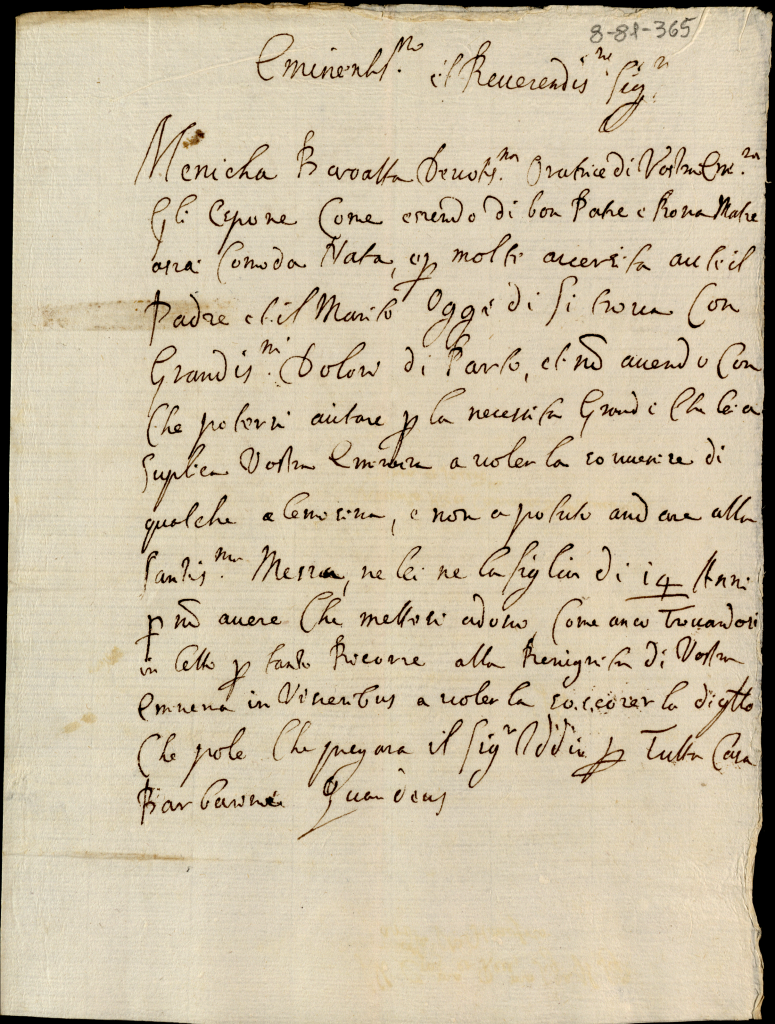 8-81-365
Eminentis.mo et Reverendis.mo Sig.r
Menicha Devotis.ma Oratrice di Vostra Em.za
Gli Espone Come essendo di bon Patre e Bona Matre
assai Comoda Nata, e p molte aversita aute il
Padre et il Marito Oggi di Si trova Con
Grandis.mi Dolori di Parto, et nō avendo Con
Che potersi aiutare p la necessita Grande Che lei a
Suplica Vostra Eminenza a volerla souvenire di
qualche elemosina, e non a potuto andare alla
Santis.ma Messa, ne lei ne la figlia di 14 Anni
p nō avere Che mettersi adosso Come anco Trovandosi
in letto p tanto Ricorre alla Benignita di Vostra
in Visceribus a volerla soccorer la di
Che pole Che pregara il Sig.r Iddio p Tutta Casa
Barbarina Quam Deus